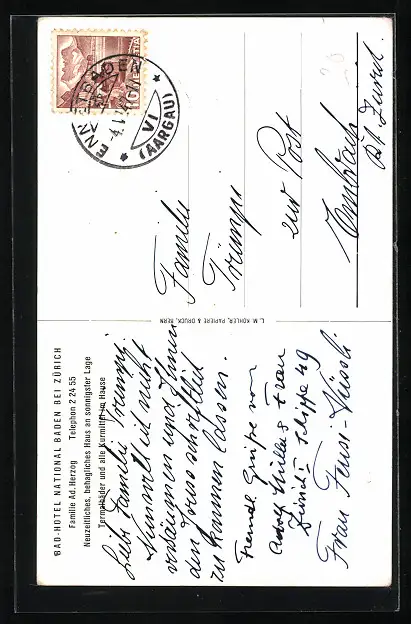 BAD-HOTEL NATIONAL BADEN BEI ZÜRICH
Familie Ad. Herzog Telephon 2 24 55
Neuzeitliches, behagliches Haus an sonnigster Lage
Termalbäder und alle Kurmittel im Hause
Liebe Familie Trümpi.
Nun will ich nicht
versäumen und Ihnen
den Gruss schriftlich
zu kommen lassen.
Freundl. Grüsse von
Adolf Müller & Frau
Zürich Schipfe 49
Frau
L. M. KOHLER, PAPIERE & DRUCK, BERN
HELVETIA
10
ENNETBADEN
VI
(AARGAU)
Familie
Trümpi
zur Post
Embrach
Kt. Zürich